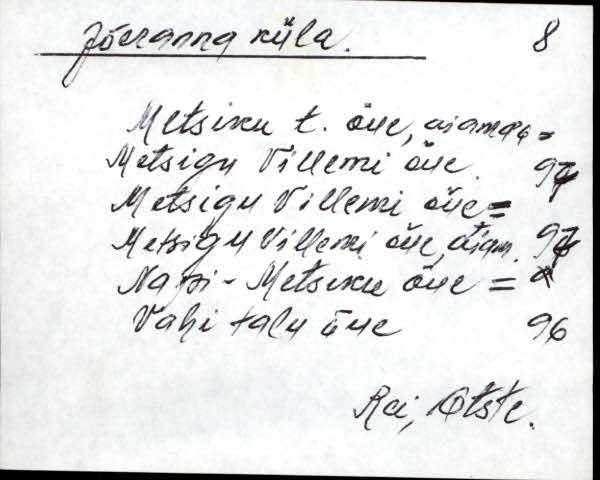 Jõeranna küla. 8
Metsiku t. õue, aiamaa =
Metsigu Villemi õue. 97
Metsigu Villemi õue =
Metsigu Villemi õue, aiam. 97
Napi-Metsiku õue =
Vahi talu õue 96
Rei, Otste.